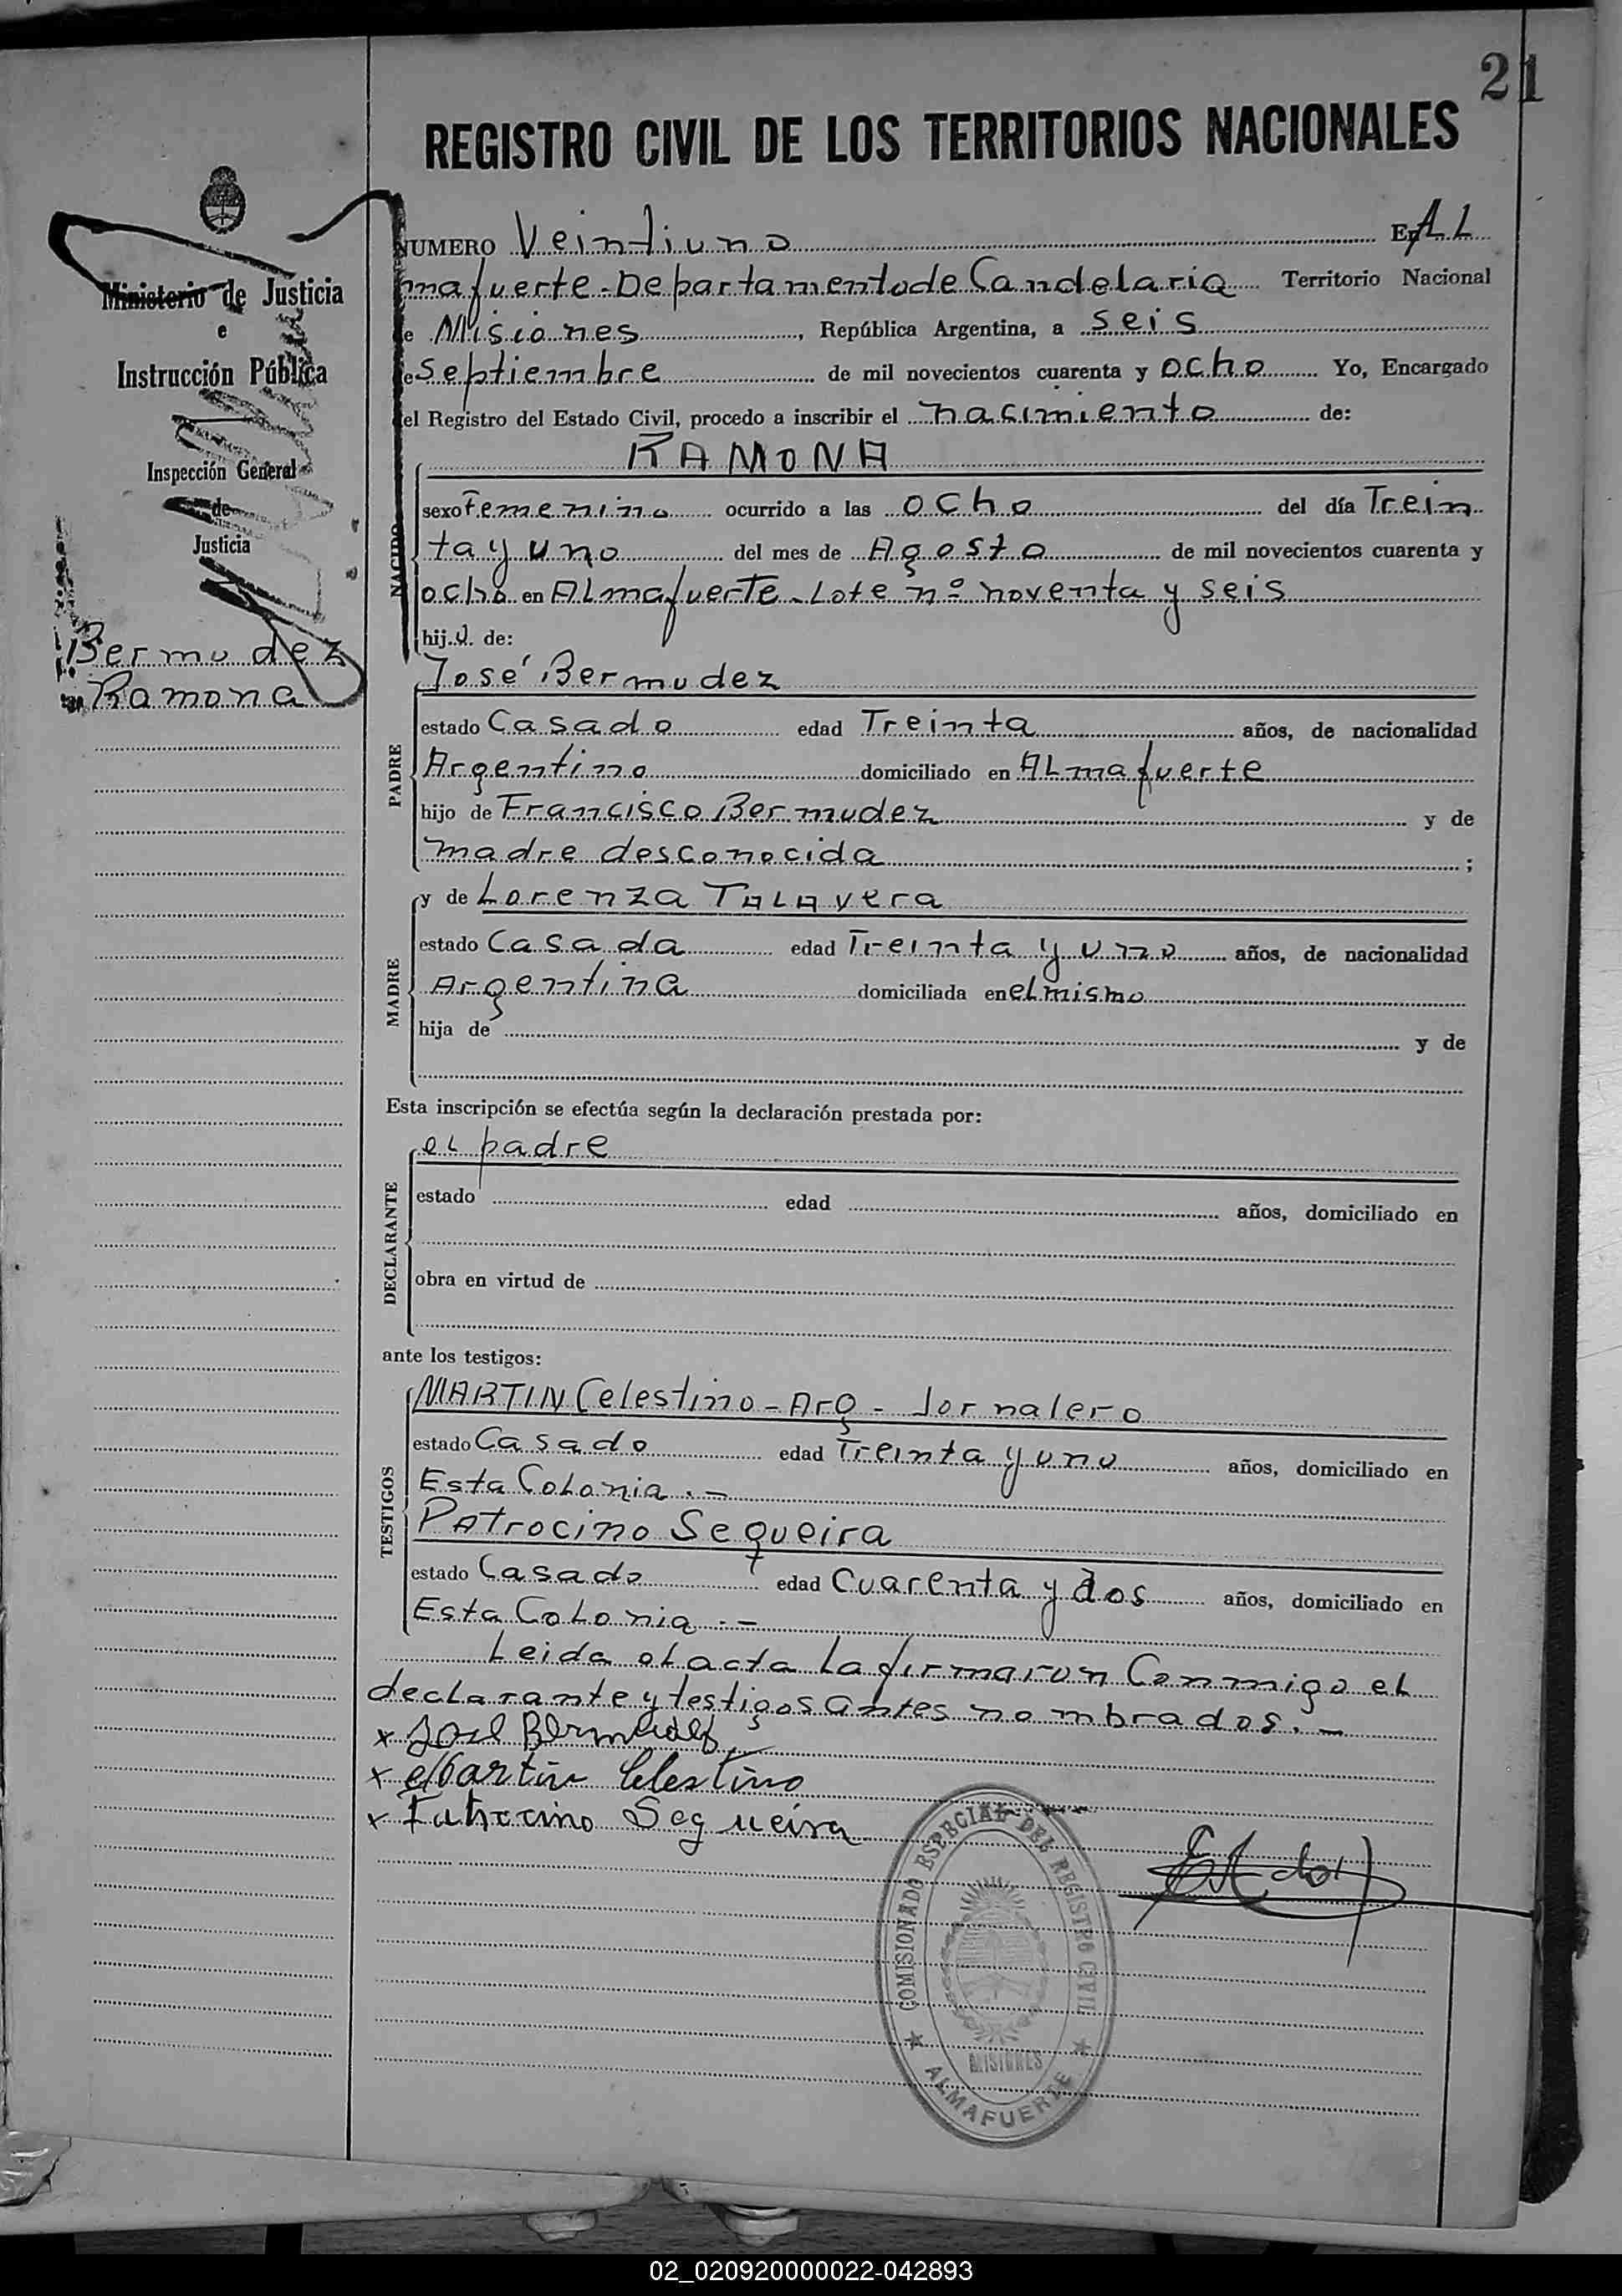 21
REGISTRO CIVIL DE LOS TERRITORIOS NACIONALES
Ministerio de Justicia
e
Instrucción Pública
Inspección General
de
Justicia
Bermudez
Ramona
NUMERO Veintiuno En AL
mafuerte - Departamento de Candelaria Territorio Nacional
de Misiones, República Argentina, a seis
de septiembre de mil novecientos cuarenta y ocho Yo, Encargado
del Registro del Estado Civil, procedo a inscribir el nacimiento de:
NACIDO
RAMONA
sexo Femenino ocurrido a las ocho del día Trein
ta y uno del mes de Agosto de mil novecientos cuarenta y
ocho en ALmafuerte - Lote nº noventa y seis
hij a de:
PADRE
José Bermudez
estado Casado edad Treinta años, de nacionalidad
Argentino domiciliado en ALmafuerte
hijo de Francisco Bermudez y de
madre desconocida ;
MADRE
y de Lorenza TALAvera
estado Casada edad Treinta y uno años, de nacionalidad
Argentina domiciliada en el mismo
hija de y de
Esta inscripción se efectúa según la declaración prestada por:
DECLARANTE
el padre
estado edad años, domiciliado en
obra en virtud de
ante los testigos:
TESTIGOS
MARTIN Celestino - Arg - Jornalero
estado Casado edad Treinta y uno años, domiciliado en
Esta Colonia . -
Patrocino Seqveira
estado Casado edad Cuarenta y dos años, domiciliado en
Esta Colonia . -
Leida el acta la firmaron Conmigo el
declarante y testigos antes nombrados. -
x José Bermudez
x Martin Celestino
x Patrocino Segueira
COMISIONADO ESPECIAL DEL REGISTRO CIVIL
MISIONES
★ ALMAFUERTE ★
02_020920000022-042893